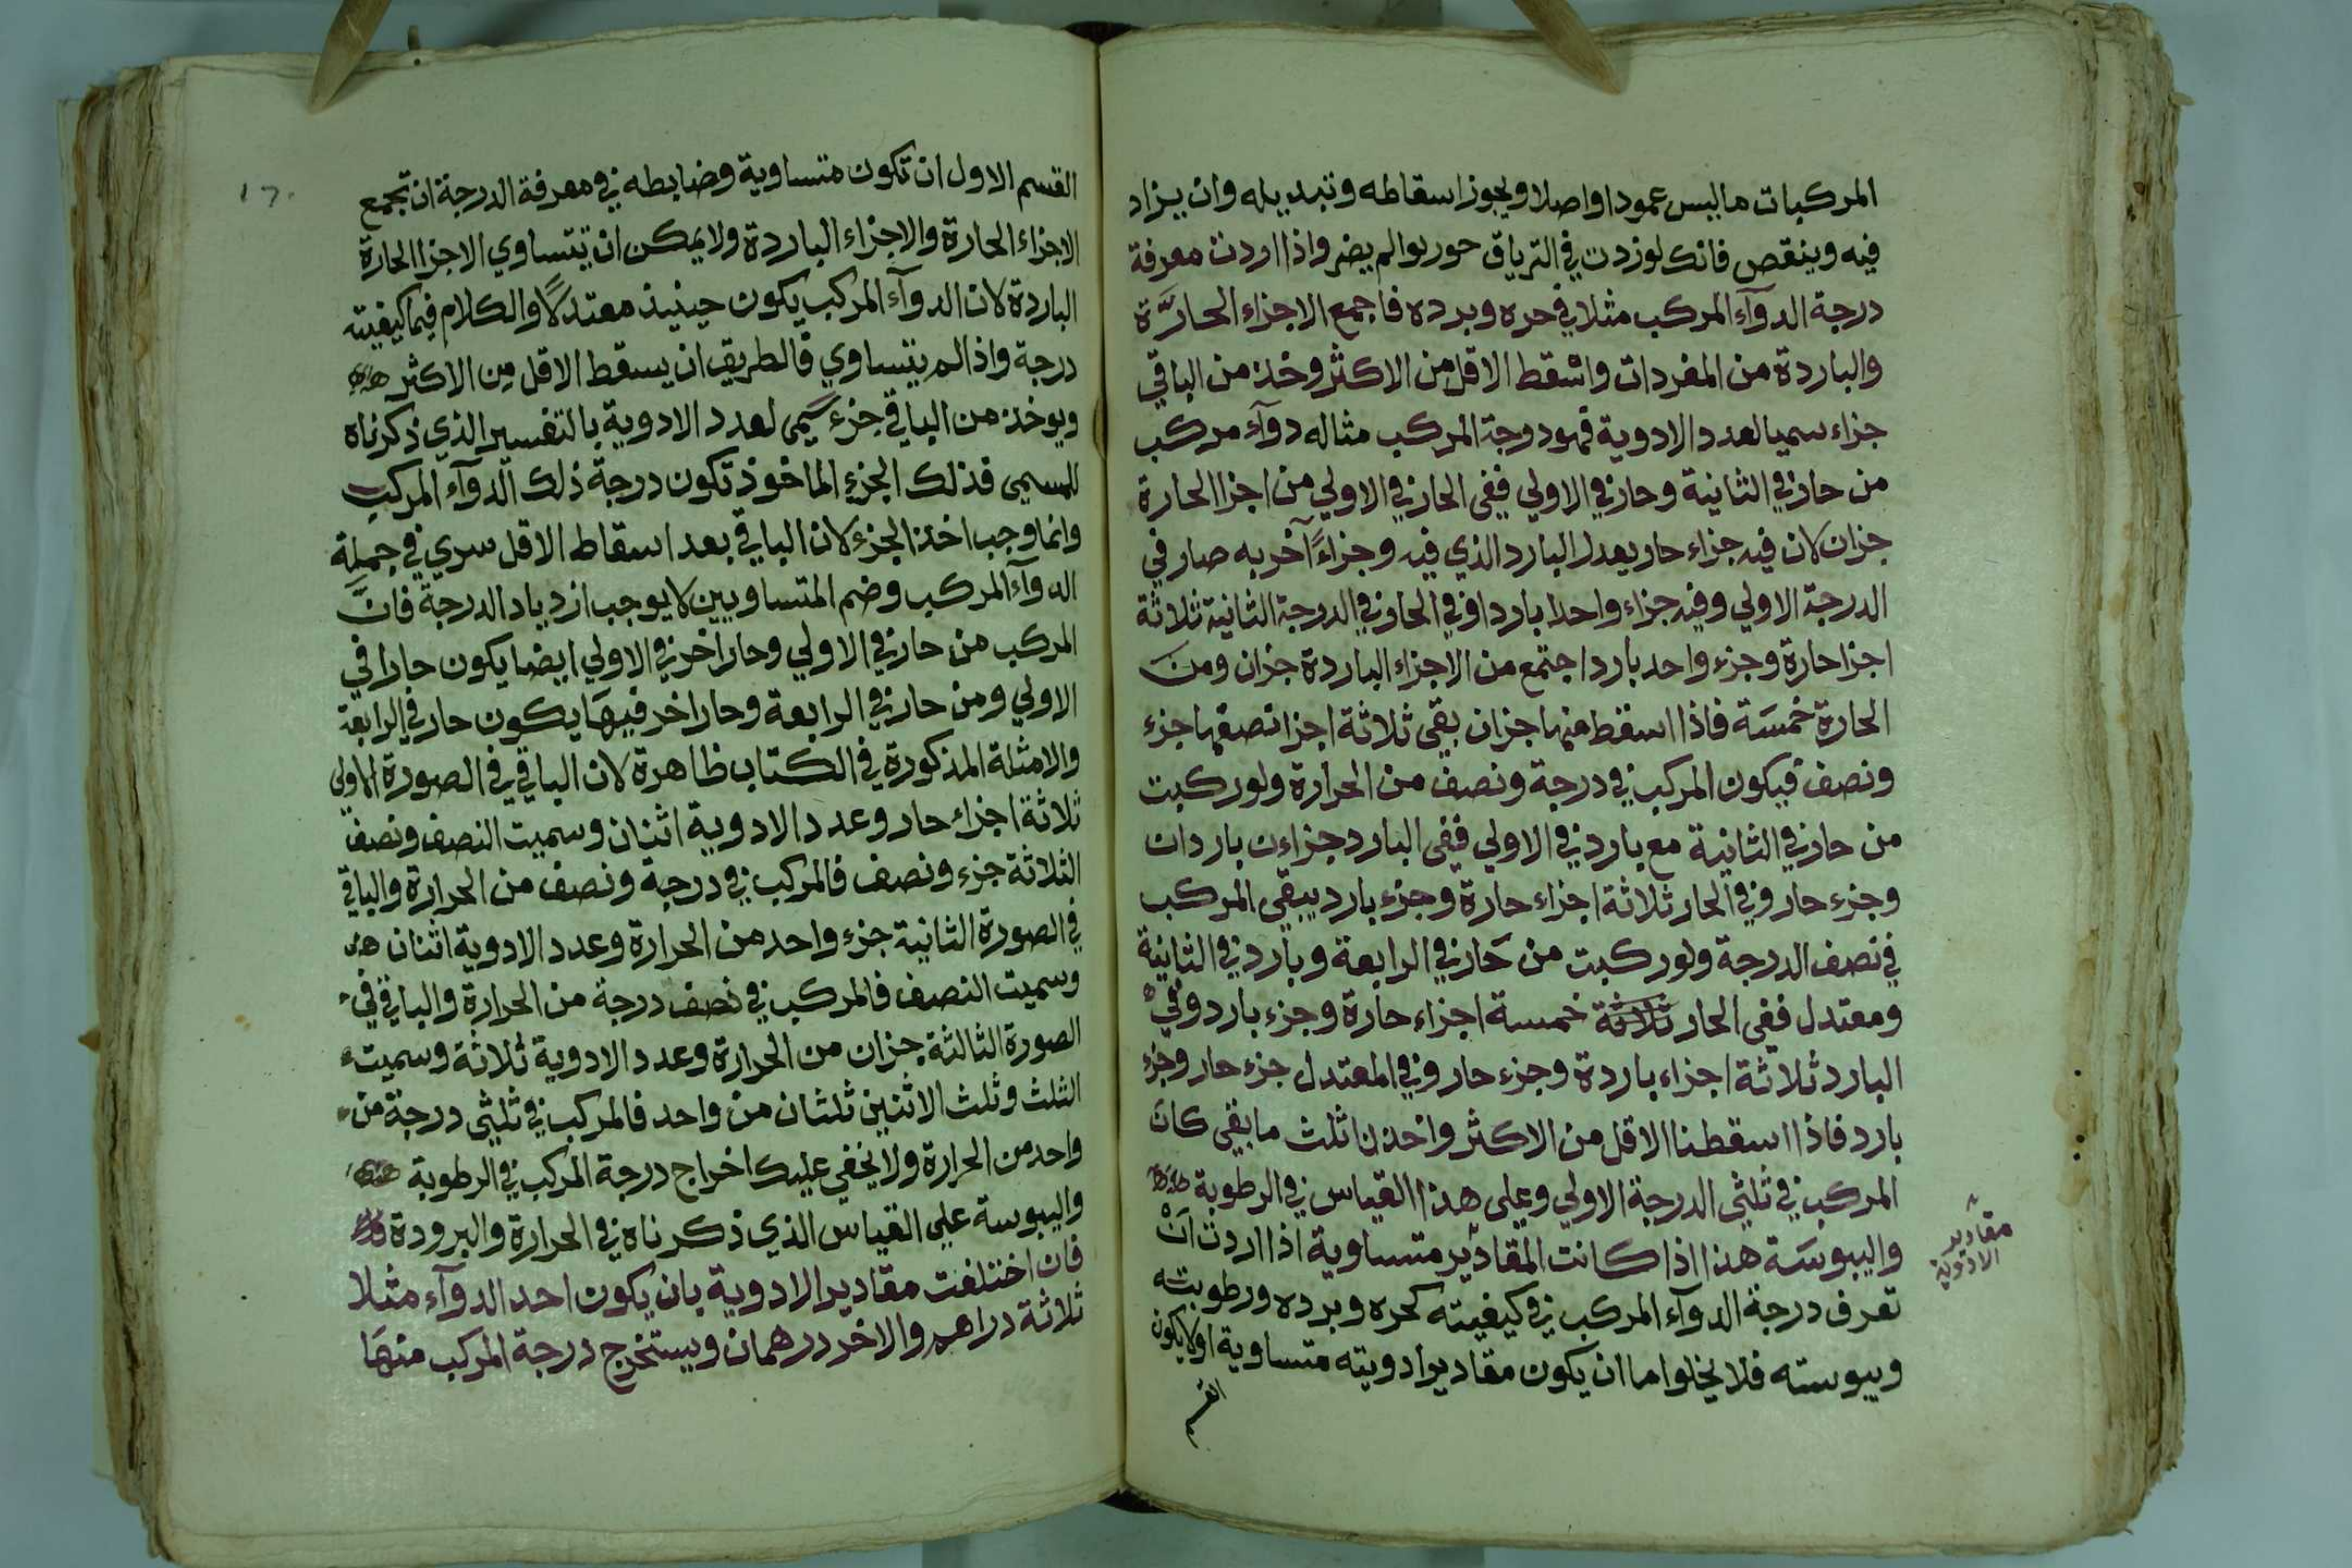 المركبات ما ليس عمودا واصلا ويجوز اسقاطه وتبديله وان يزاد
فيه وينقص فانك لو زدت في الترياق حوربوا لم يضر واذا اردت معرفة
درجة الدوآء المركب مثلا في حره وبرده فاجمع الاجزاء الحارَّة
والباردة من المفردات واسْقط الاقل من الاكثر وخذ من الباقي
جزاء سميا لعدد الادوية فهو درجة المركب مثاله دوآء مركب
من حار في الثانية وحار في الاولي ففى الحار في الاولي من اجزا الحارة
جزان لان فيه جزاء حار يعدل البارد الذي فيه وجزاءً آخر به صار في
الدرجة الاولي وفيه جزاء واحدا باردا وفي الحار في الدرجة الثانية ثلاثة
اجزا حارة وجزء واحد باردا جتمع من الاجزاء الباردة جزان ومن
الحارة خمسَة فاذا اسقط منها جزان بقى ثلاثة اجزا نصفها جزء
ونصف فيكون المركب في درجة ونصف من الحرارة ولو ركبت
من حار في الثانية مع بارد في الاولي ففى البارد جزاءن باردان
وجزء حار وفي الحار ثلاثة اجزاء حارة وجزء بارد يبقى المركب
في نصف الدرجة ولو ركبت من حَار في الرابعة وبارد في الثانية
ومعتدل ففى الحار ثلاثة خمسة اجزاء حارة وجزء بارد وفي
البارد ثلاثة اجزاء باردة وجزء حار وفي المعتدل جزء حار وجزء
بارد فاذا اسقطنا الاقل من الاكثر واخذنا ثلث ما بقي كان
المركب في ثلثى الدرجة الاولي وعلى هذا القياس في الرطوبة
واليبوسَة هذا اذا كانت المقادير متساوية اذا اردت انْ
تعرف درجة الدوآء المركب في كيفيته كحره وبرده ورطوبته
ويبوسته فلا يخلوا ما ان يكون مقادير ادويته متساوية او لا يكون
القسم
مقادير
الادوية
القسم الاول ان تكون متساوية وضابطه في معرفة الدرجة ان تجمع
الاجزاء الحارة والاجزاء الباردة ولا يمكن ان تتساوي الاجزا الحارة
الباردة لان الدوآء المركب يكون حينيذ معتدلًا والكلام فيما كيفيته
درجة واذا لم يتساوي فالطريق ان يسقط الاقل مِن الاكثر
ويوخذ من الباقي جزء سَمي لعدد الادوية بالتفسير الذي ذكرناه
للمسمي فذلك الجزء الماخوذ تكون درجة ذلك الدوآء المركب
وانما وجب اخذ الجزء لان الباقي بعد اسقاط الاقل سري في جملة
الدوآء المركب وضم المتساويين لا يوجب ازدياد الدرجة فانَّ
المركب من حار في الاولي وحار اخر في الاولي ايضا يكون حارا في
الاولي ومن حار في الرابعة وحار اخر فيهَا يكون حار في الرابعة
والامثلة المذكورة في الكتاب ظاهرة لان الباقي في الصورة الاولى
ثلاثة اجزاء حار وعدد الادوية اثنان وسميت النصف ونصف
الثلاثة جزء ونصف فالمركب في درجة ونصف من الحرارة والباقي
في الصورة الثانية جزء واحد من الحرارة وعدد الادوية اثنان
وسميت النصف فالمركب في نصف درجة من الحرارة والباقي في
الصورة الثالثة جزان من الحرارة وعدد الادوية ثلاثة وسميت
الثلث وثلث الاثنين ثلثان من واحد فالمركب في ثلثى درجة من
واحد من الحرارة ولا يخفي عليك اخراج درجة المركب في الرطوبة
واليبوسة علي القياس الذي ذكرناه في الحرارة والبرودة
فان اختلفت مقادير الادوية بان يكون احد الدوآء مثلا
ثلاثة دراهم والاخر درهمان ويستخرج درجة المركب منهَا